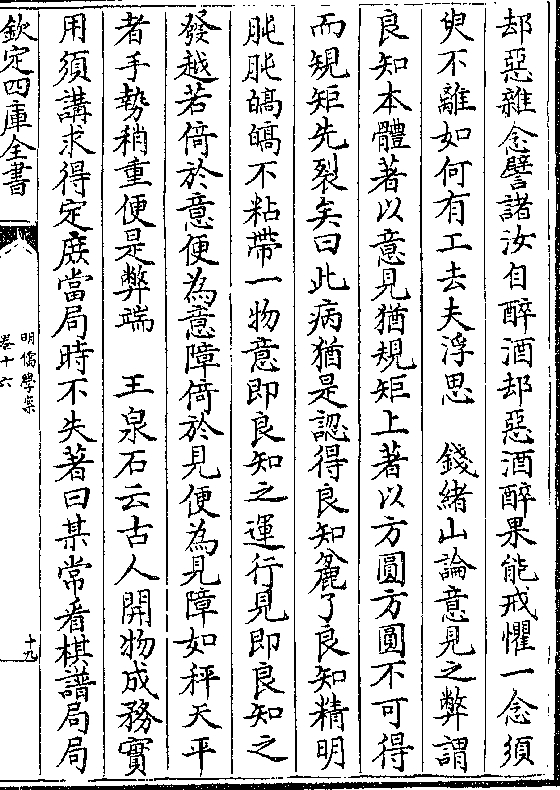 却惡雜念譬諸汝自醉酒却惡酒醉果能戒懼一念須
臾不離如何有工去夫浮思　錢緒山論意見之弊謂
良知本體著以意見猶規矩上著以方圓方圓不可得
而䂓矩先裂矣曰此病猶是認得良知麄了良知精明
肫肫皜皜不粘帶一物意即良知之運行見即良知之
發越若倚於意便為意障倚於見便為見障如秤天平
者手勢稍重便是弊端　王泉石云古人開物成務實
用須講求得定庶當局時不失著曰某常看棋譜局局
欽定四庫全書
明儒學案
卷十六
十九